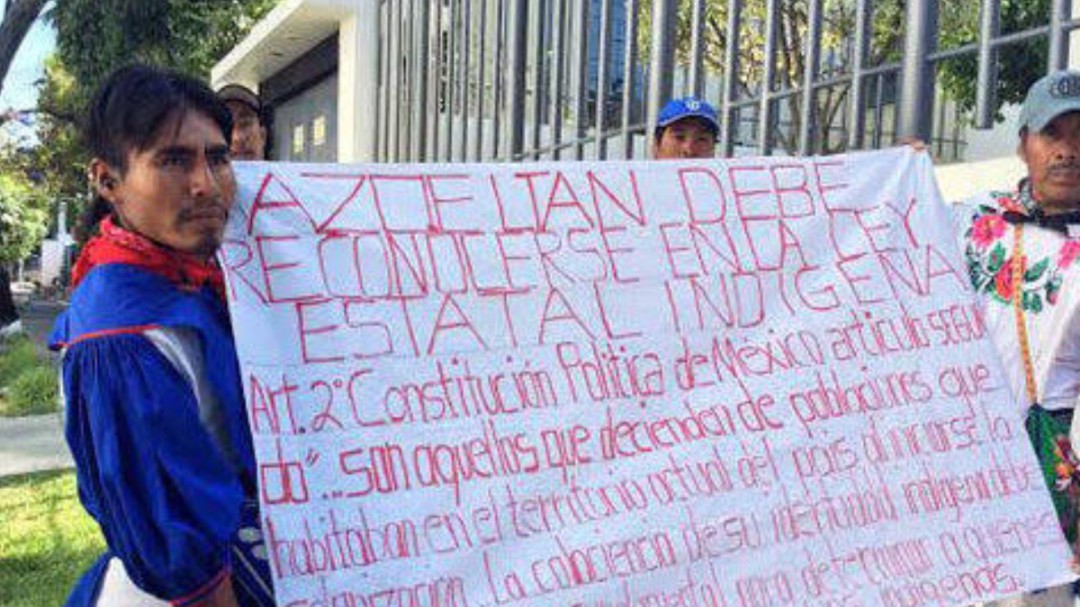 AZQUELTAN DEBE
RECONOCERSE EN LA LEY
ESTATAL INDIGENA
Art. 2° Constitución Politica de México articulo SEGUN
do"... son aquellos que decienden de poblaciones que
habitaban en el territorio actual del país al iniciarse la
colonización. La conciencia de su identidad indigena debe
para determinar a quienes
indigenas.